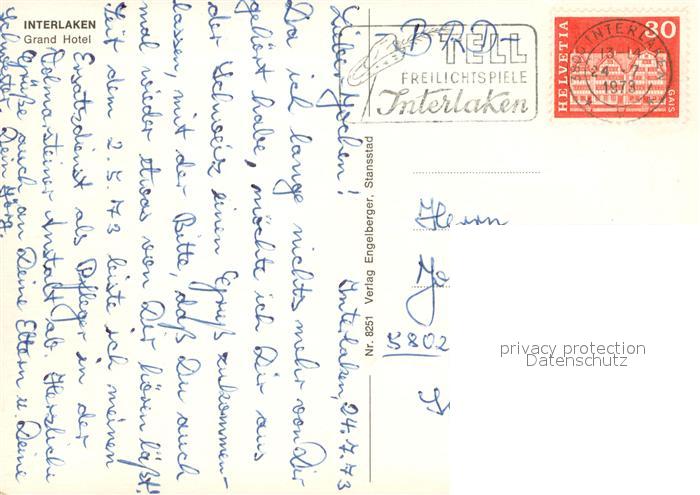 INTERLAKEN
Grand Hotel
Interlaken, 24.7.73
Lieber Jochen!
Da ich lange nichts mehr von Dir
gehört habe, möchte ich Dir aus
der Schweiz einen Gruß zukommen
lassen, mit der Bitte, daß Du auch
mal wieder etwas von Dir hören läßt!
Seit dem 2.5.73 leiste ich meinen
Ersatzdienst als Pfleger in der
Volmarsteiner Anstalt ab. Herzliche
Grüße auch an Deine Eltern u. Deine
Schwester, Dein Jörg.
Nr. 8251 Verlag Engelberger, Stansstad
-BRD-
TELL
FREILICHTSPIELE
Interlaken
INTERLAKEN
13-14
24.-7.
1973
HELVETIA
30
GAIS
Herrn
5802
privacy protection
Datenschutz